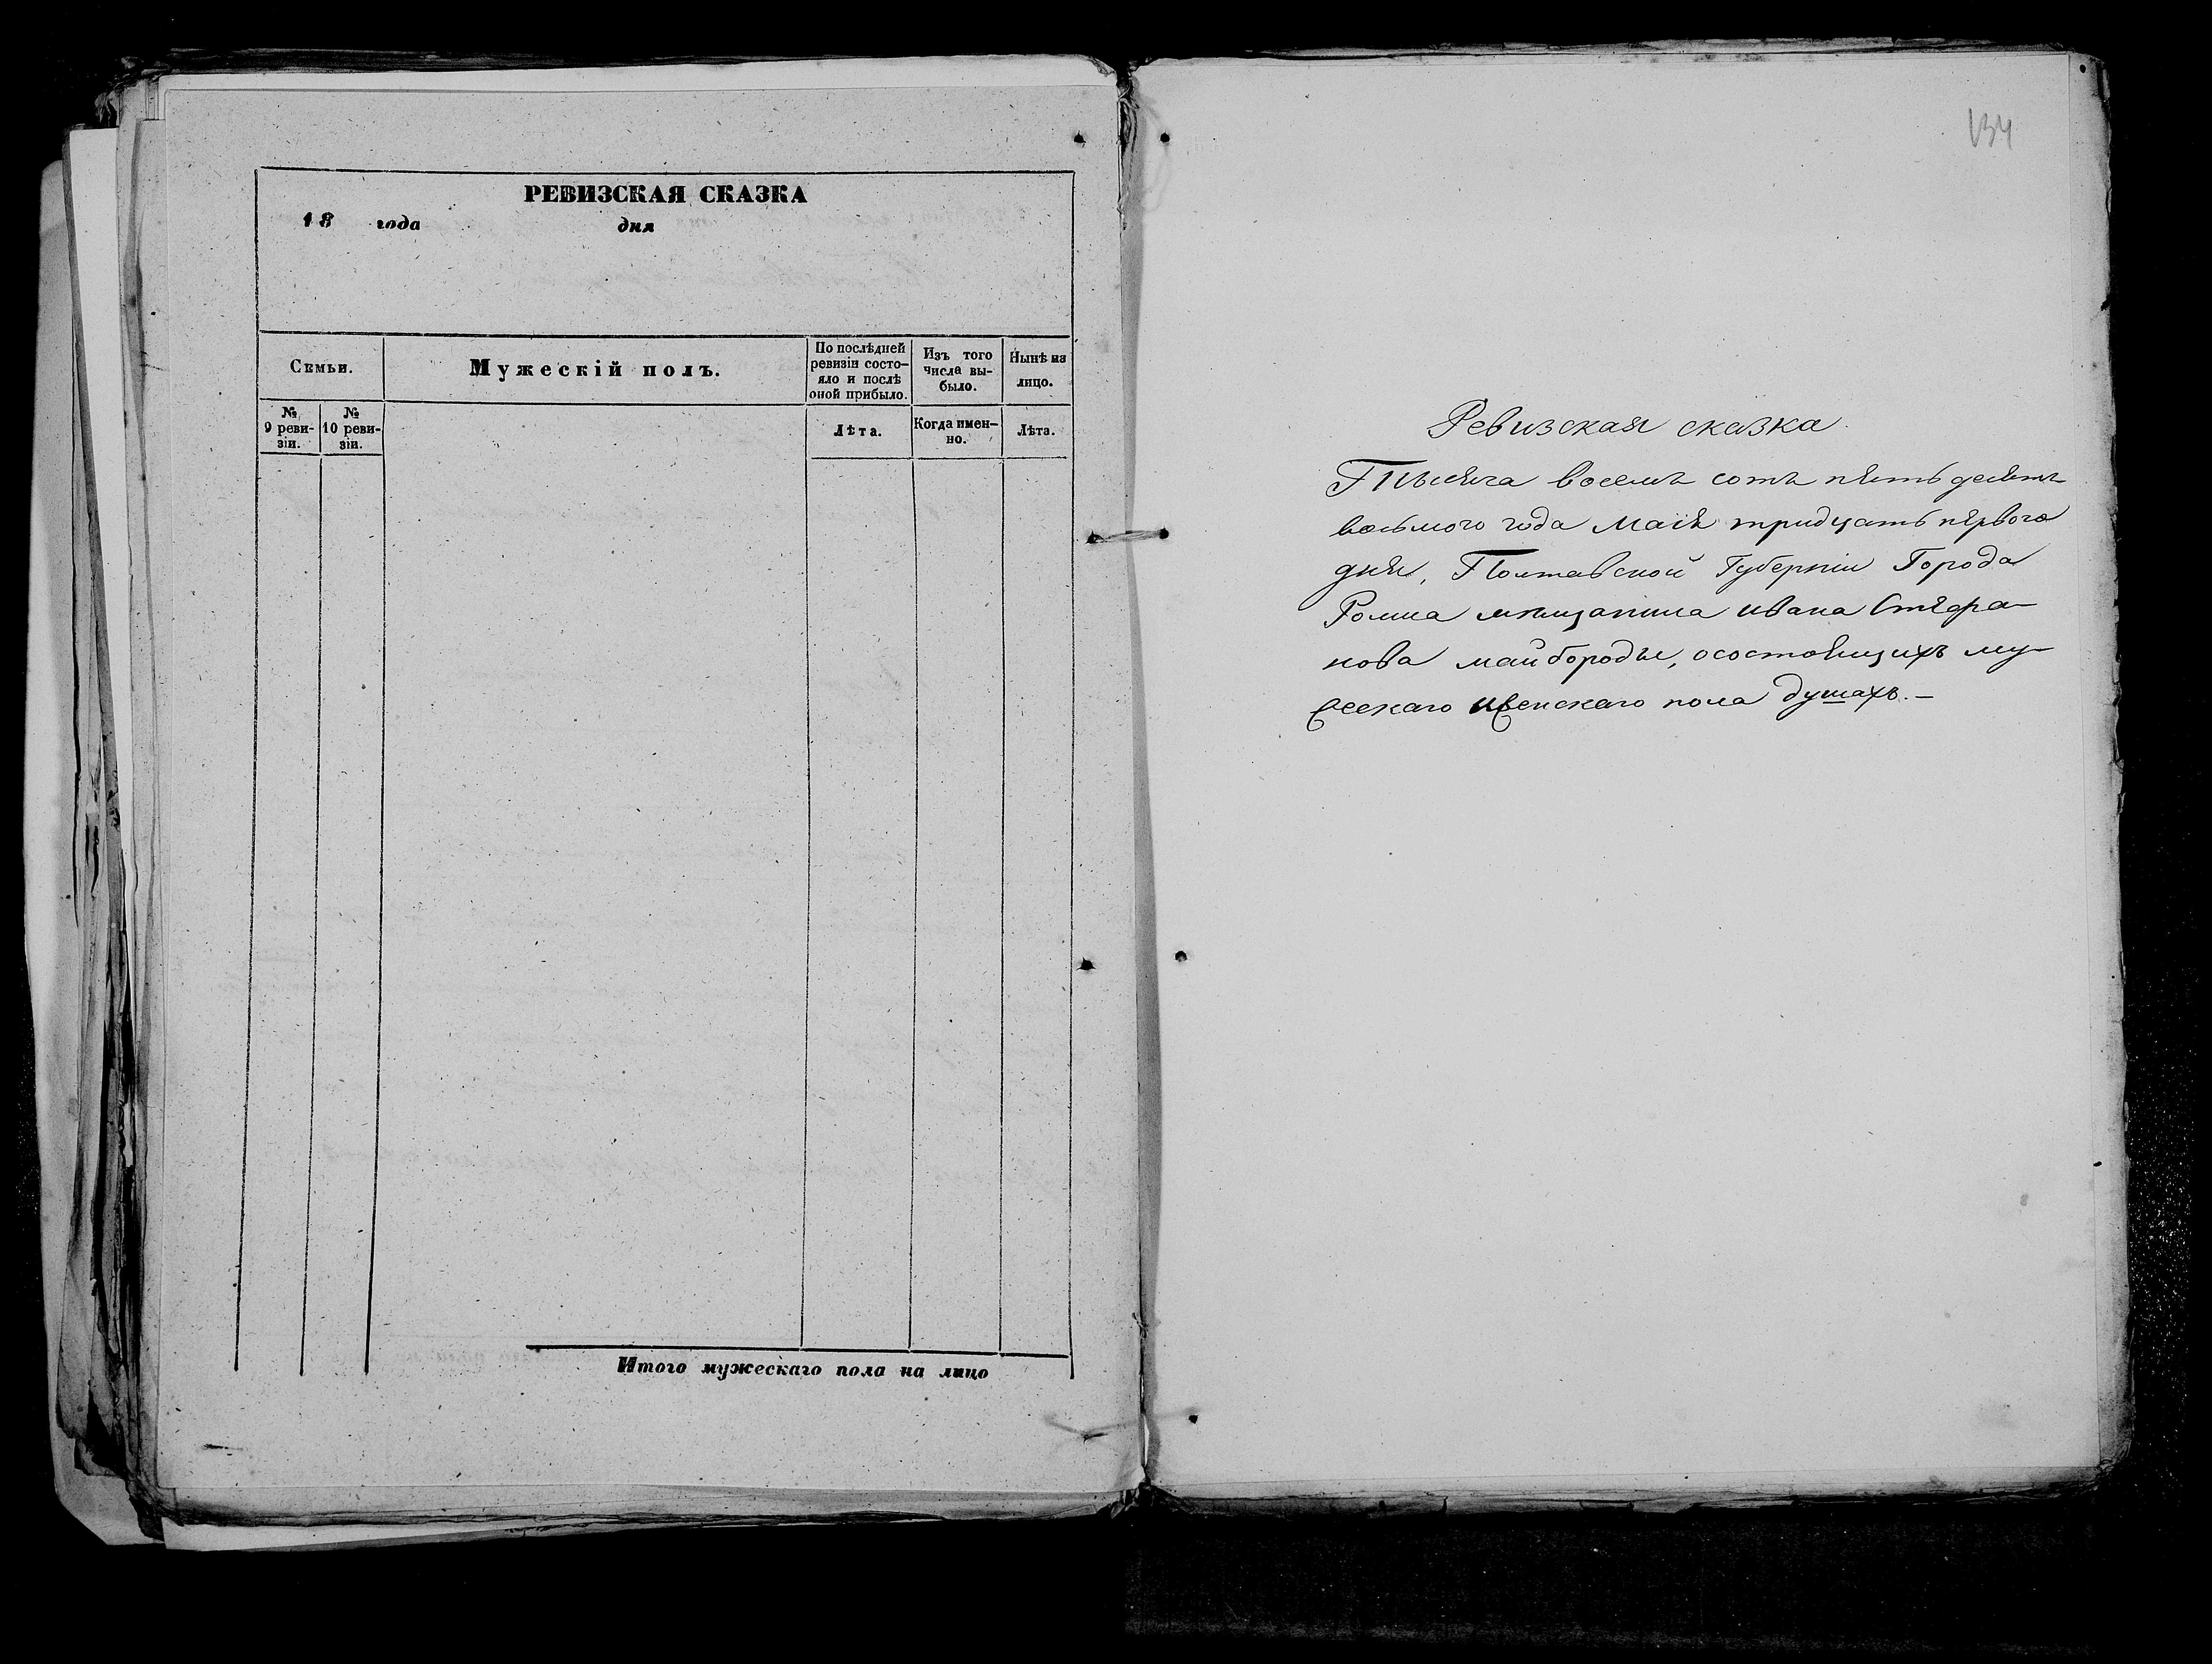 РЕВИЗСКАЯ СКАЗКА
18 года дня
Семьи.
Мужескій полъ.
По послѣдней
ревизіи состо-
яло и послѣ
оной прибыло.
Изъ того
числа вы-
было.
Нынѣ на
лицо.
№
9 реви-
зіи.
№
10 реви-
зіи.
Лѣта.
Когда имен-
но.
Лѣта.
Итого мужескаго пола на лицо
134
Ревизская сказка
Тысяча восемь сотъ пять десятъ
восьмого года Маія тридцать первого
дня, Полтавской Губерніи Города
Ромна мѣщанина ивана Стефа-
нова майбороды, осостоящихъ му-
жескаго иженскаго пола душахъ.-